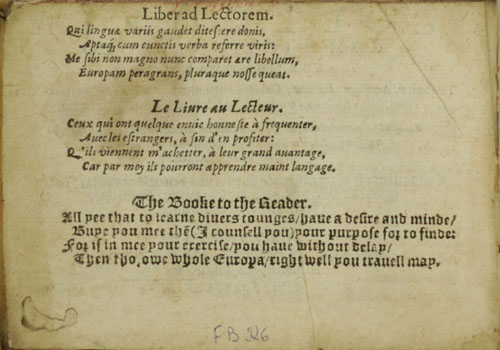 Liber ad Lectorem.
Qui linguæ variis gaudet ditescere donis,
Aptaq; cum cunctis verba referre viris:
Me sibi non magno nunc comparet ære libellum,
Europam peragrans, pluraque nosse queat.
Le Livre au Lecteur.
Ceux qui ont quelque envie honneste à frequenter,
Avec les estrangers, à fin d'en profiter:
Qu'ils viennent m'achetter, à leur grand avantage,
Car par moy ils pourront apprendre maint langage.
The Booke to the Reader.
All yee that to learne divers tounges/have a desire and minde/
Buye you mee thē(I counsell you)your purpose for to finde:
For if in mee your exercise/you have without delay/
Then thorowe whole Europa/right well you travell may.
FB 226